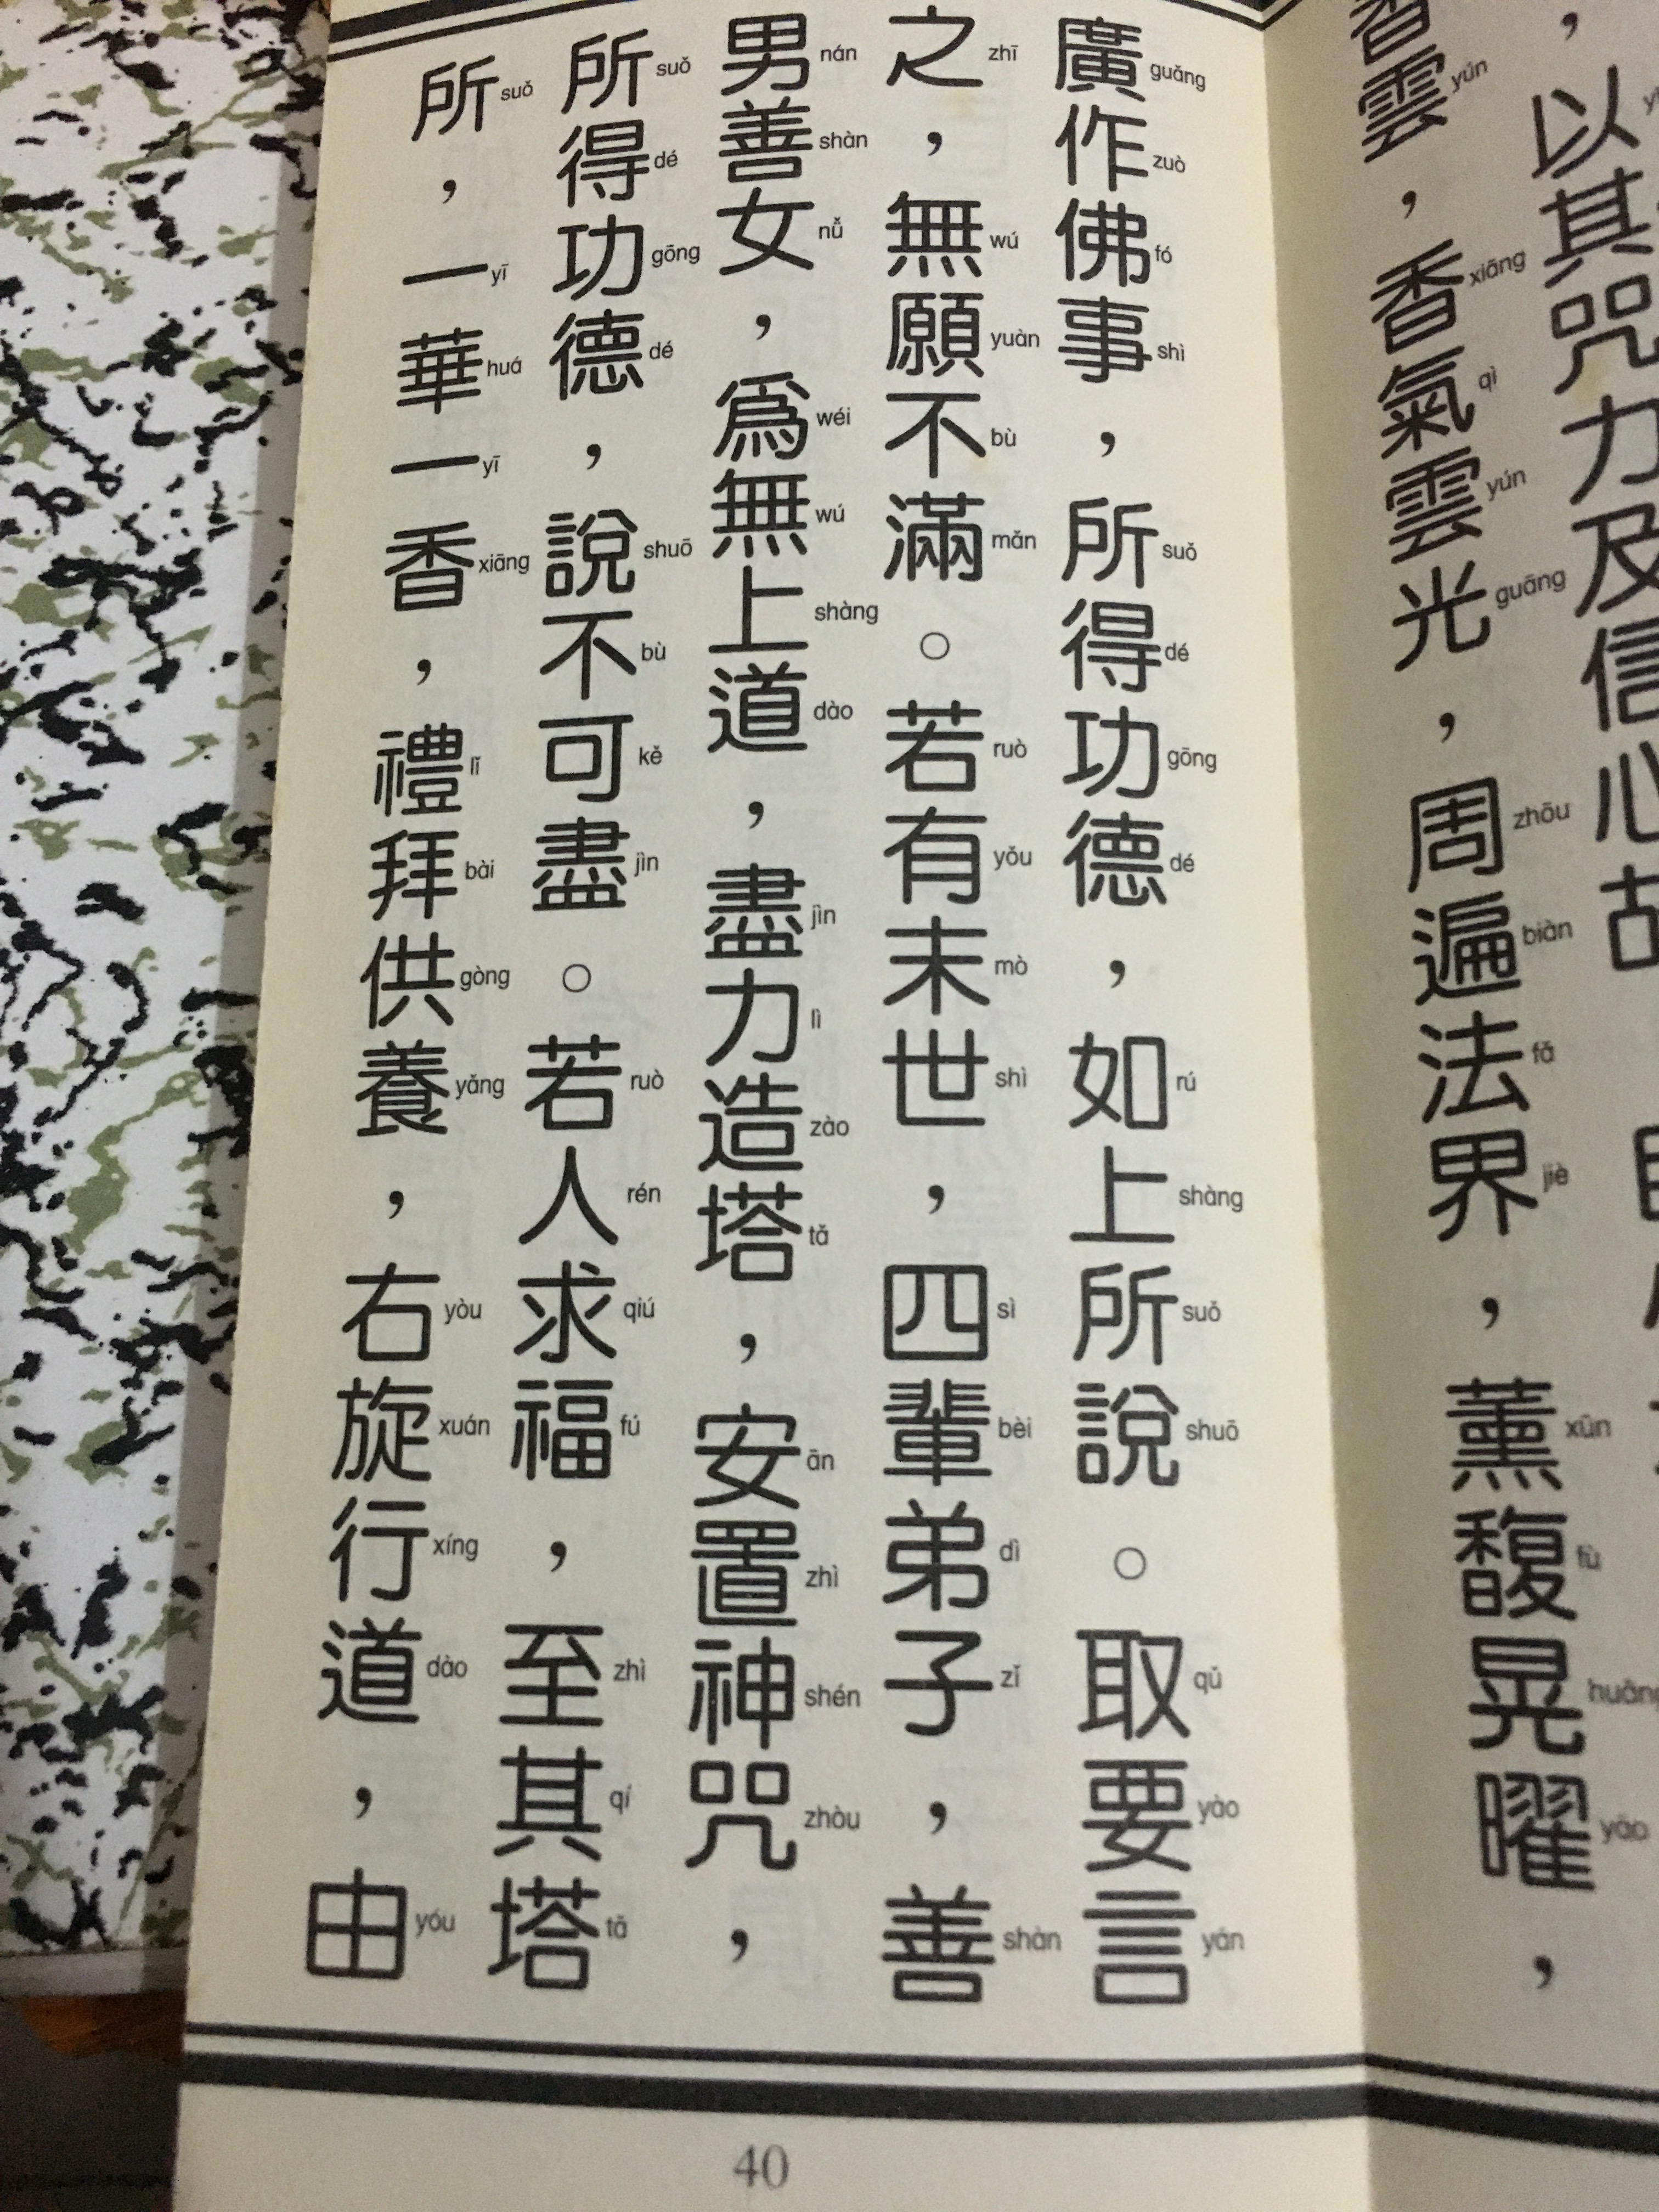 以其咒力及信心故
香雲，香氣雲光，周遍法界，薰馥晃曜，
廣作佛事，所得功德，如上所說。取要言
之，無願不滿。若有末世，四輩弟子，善
男善女，為無上道，盡力造塔，安置神咒，
所得功德，說不可盡。若人求福，至其塔
所，一華一香，禮拜供養，右旋行道，由
40